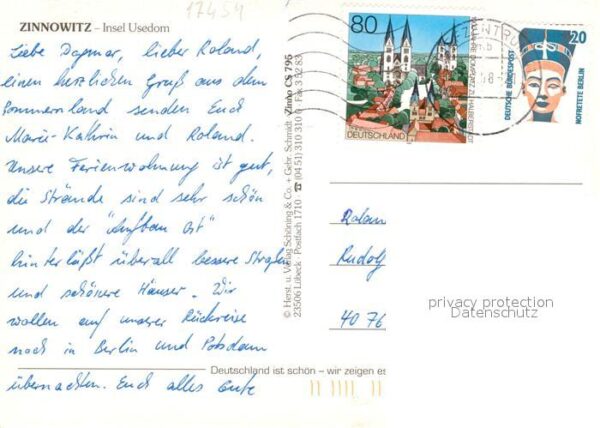 17454
ZINNOWITZ – Insel Usedom
Liebe Dagmar, lieber Roland,
einen herzlichen Gruß aus dem
Sommerland senden Euch
Marie-Kathrin und Roland.
Unsere Ferienwohnung ist gut,
die Strände sind sehr schön
und der "Aufbau Ost"
hinterläßt überall bessere Straßen
und schönere Häuser. Wir
wollen auf unserer Rückreise
noch in Berlin und Potsdam
übernachten. Euch alles Gute
© Herst. u. Verlag Schöning & Co. + Gebr. Schmidt
23506 Lübeck · Postfach 1710 · ☎ (04 51) 310 310 · Fax 3 52 83
Zinno CS 796
80
DEUTSCHLAND
20
DEUTSCHE BUNDESPOST
NOFRETETE BERLIN
Rudolf
4076
privacy protection
Datenschutz
Deutschland ist schön – wir zeigen es